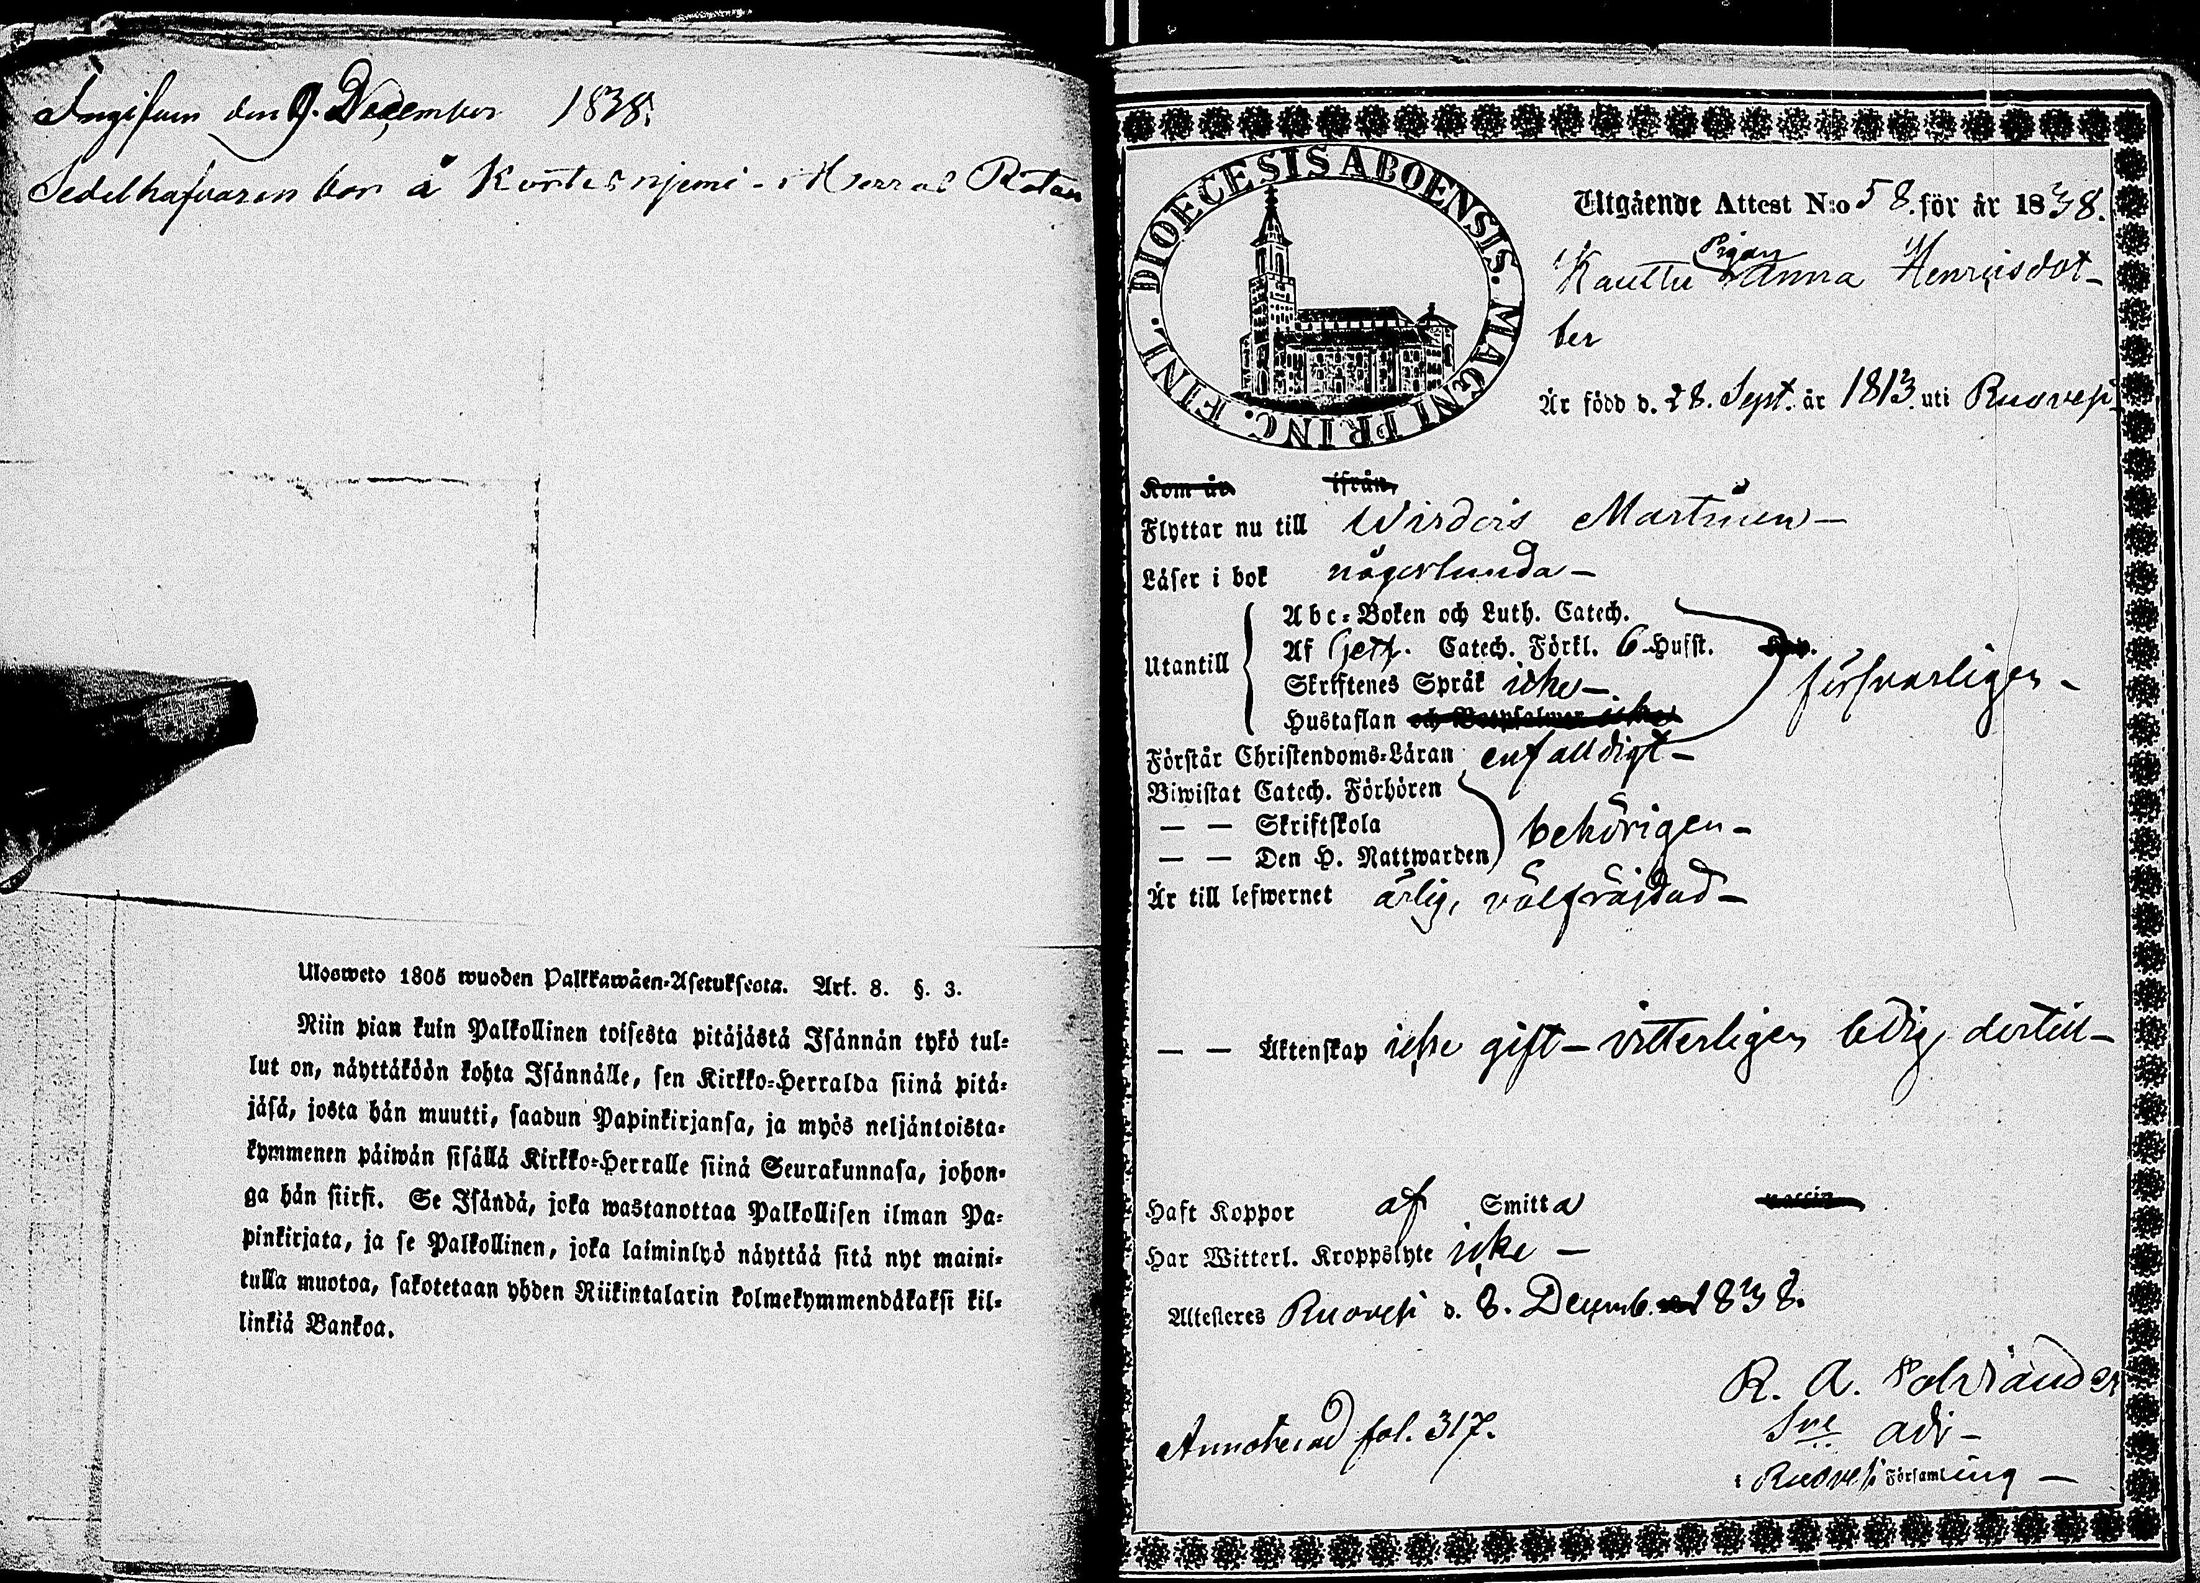 Ingifven den 9. December 1838.
Sedelhafvaren bor å Kortesnjemi
Ulosweto 1805 wuoden Palkkawäen-Asetuksesta. Art. 8. §. 3.
Niin pian kuin Palkollinen toisesta pitäjästä Isännän tykö tul-
lut on, näyttäköön kohta Isännälle, sen Kirkko-Herralda siinä pitä-
jäsä, josta hän muutti, saadun Papinkirjansa, ja myös neljäntoista-
kymmenen päiwän sisällä Kirkko-Herralle siinä Seurakunnasa, johon-
ga hän siirsi. Se Isändä, joka wastanottaa Palkollisen ilman Pa-
pinkirjata, ja se Palkollinen, joka laiminlyö näyttää sitä nyt maini-
tulla muotoa, sakotetaan yhden Riikintalarin kolmekymmendäkaksi kil-
linkiä Bankoa.
DIOECESIS ABOENSIS. MAGNI PRINC. FINL.
Utgående Attest N:o 58. för år 1838.
Pigan
Kauttu Anna Henricsdot-
ter
Är född d. 28. Sept. år 1813. uti Ruovesi
Kom år ifrån
Flyttar nu till Wirdois
Läser i bok någorlunda –
Abc-Boken och Luth. Catech.
Utantill
Af Catech. Förkl. 6 Hufst.
försvarligen –
Skriftenes Språk icke –
Hustaflan och Botpsalmer icke
Förstår Christendoms-Läran enfalldigt –
Biwistat Catech. Förhören
— — Skriftskola
behörigen –
— — Den H. Nattwarden
Är till lefwernet ärlig, välfräjdad –
— — Äktenskap icke gift – vitterligen ledig dertill –
Haft Koppor af Smitta
Har Witterl. Kroppslyte icke –
Attesteres Ruovesi d. 8. Decemb. 1838.
R. A.
Annoterad fol. 317.
adj –
i Ruovesi Församling –